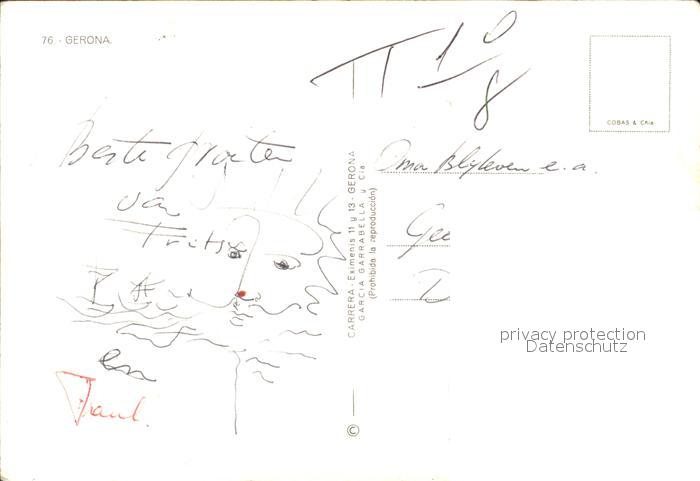 76 - GERONA.
T 10/8
COBAS & Cña.
Beste groeten
van
Fritsje
en
Paul.
CARRERA - Eximenis 11 y 13 - GERONA
GARCIA GARRABELLA y Cía.
(Prohibida la reproducción)
©
Oma Blyleven e.a.
Gee
privacy protection
Datenschutz